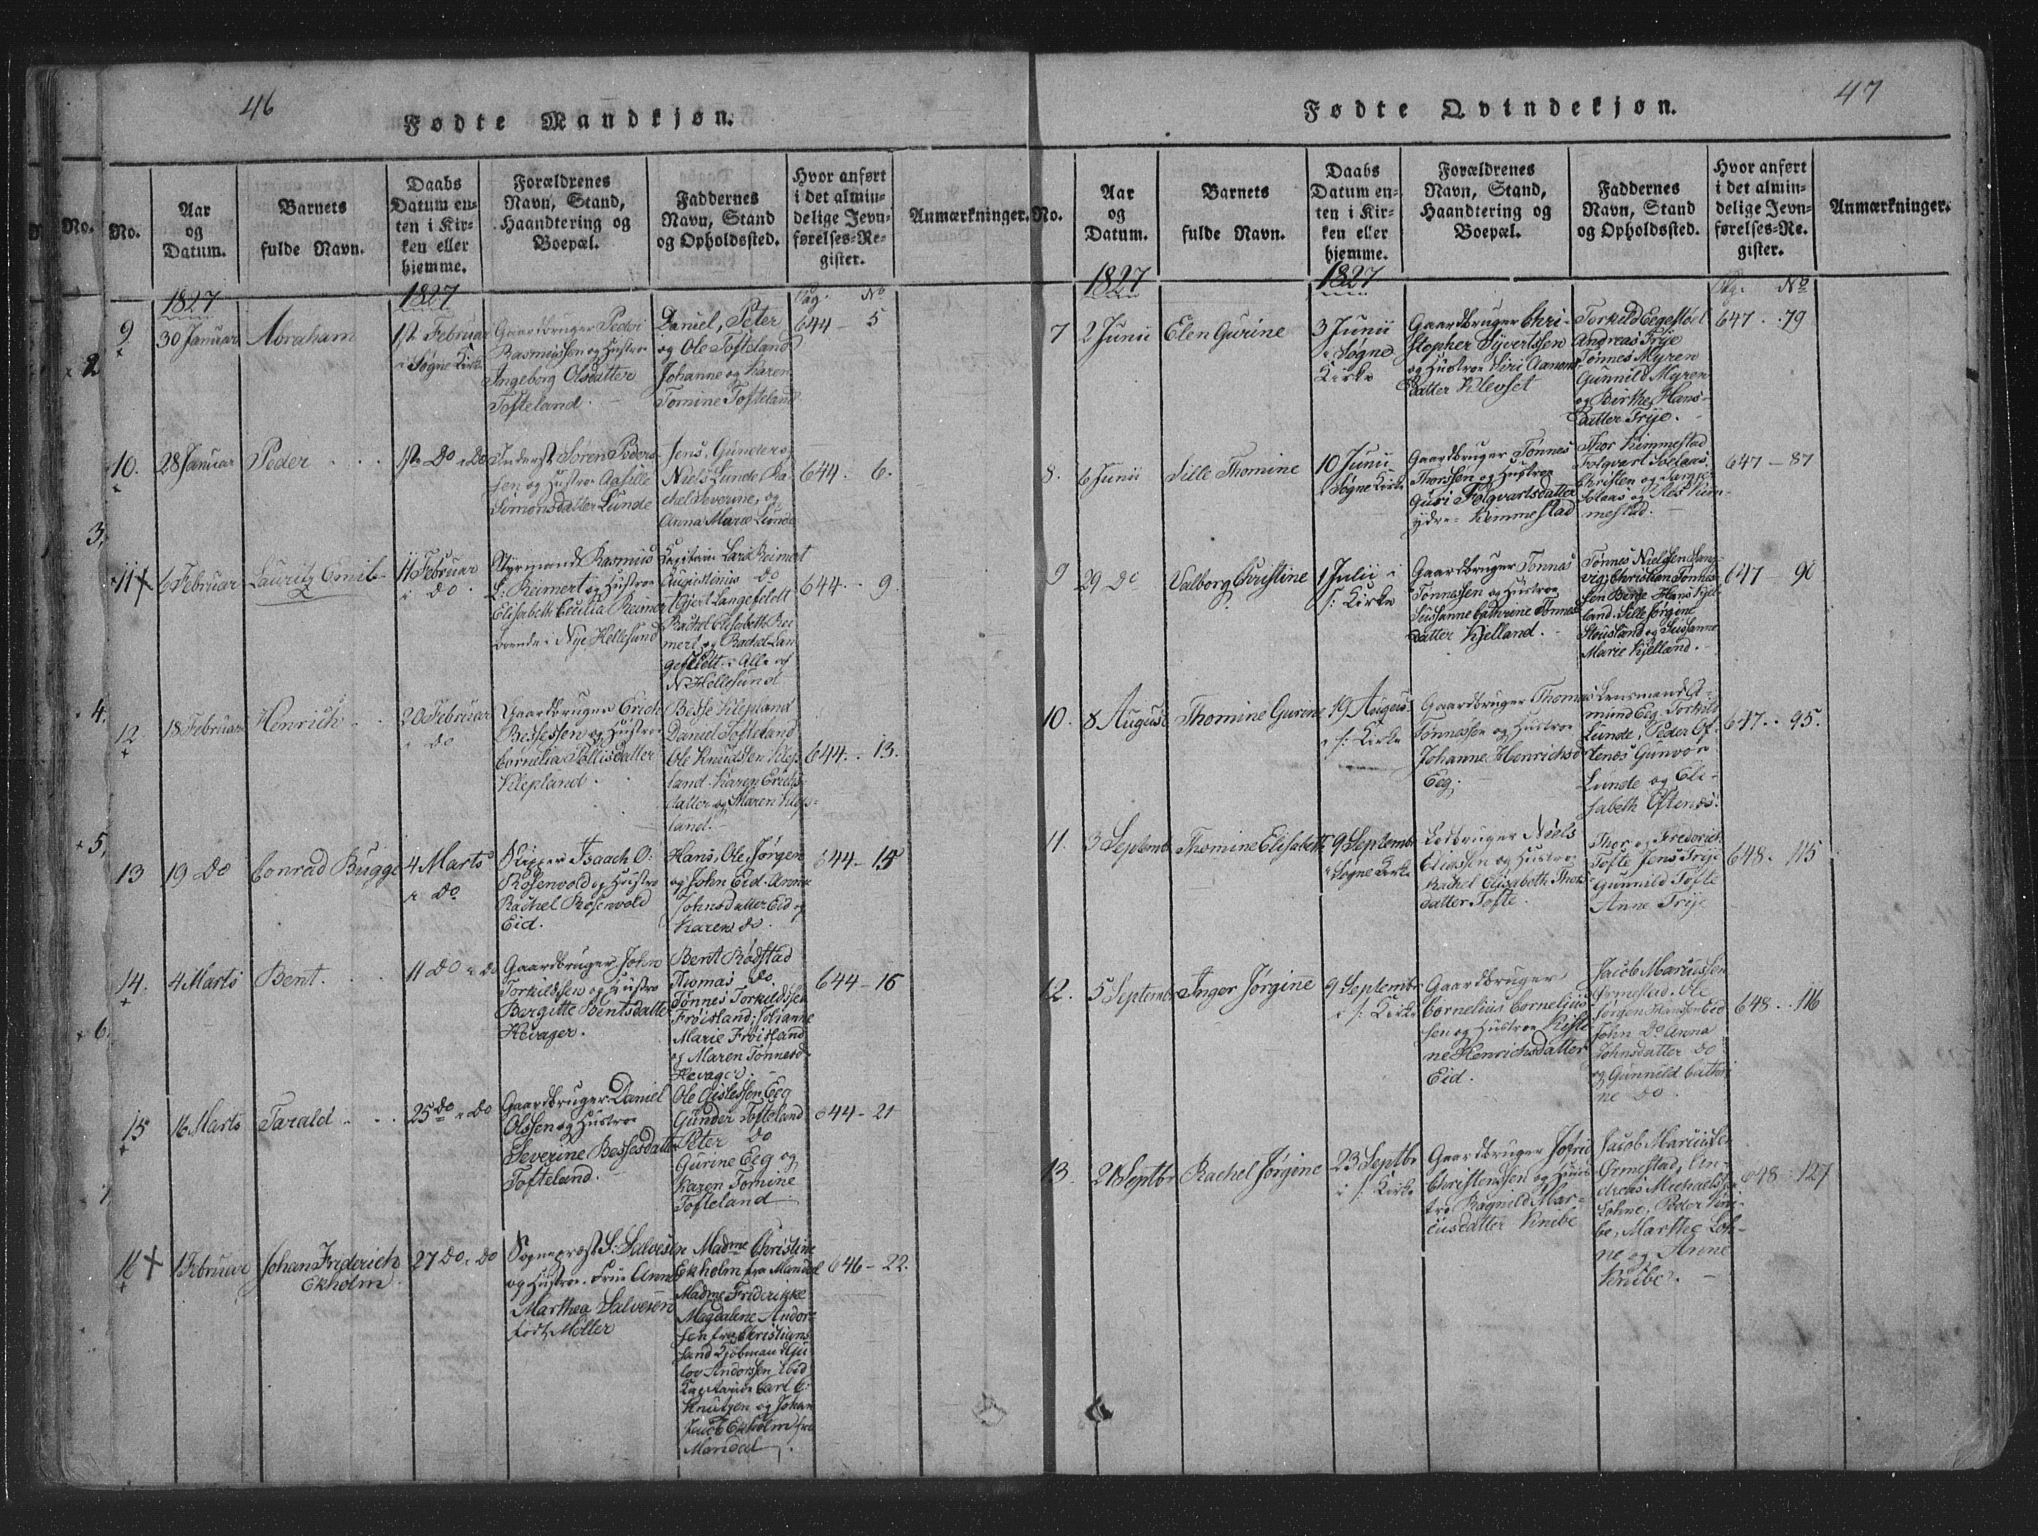 46
Fødte Mandkjøn.
No.
Aar
og
Datum.
Barnets
fulde Navn.
Daabs
Datum en-
ten i Kir-
ken eller
hjemme.
Forældrenes
Navn, Stand,
Haandtering og
Boepæl.
Faddernes
Navn, Stand
og Opholdssted.
Hvor anført
i det almin-
delige Jevn-
førelses-Re-
gister.
Anmærkninger.
1827
1827
Pag. No
9
30 Januar
Abraham
1st Februar
i Søgne Kirke
Gaardbruger Peder
Rasmussen og Hustroe
Ingeborg Olsdatter
Tofteland.
Daniel, Peter
og Ole Tofteland
Johanne og Karen
Tomine Tofteland
644 - 5
10.
28 Januar
Peder
1st Do i Do
Inderst Søren Peders-
sen og Hustroe Aasille
Simonsdatter Lunde
Jens, Gunders,
Niels Lunde, Ra-
chel Severine, og
Anna Marie Lunde
644. 6.
11 +
6 Februar
Lauritz Emil
11 Februar
i Do.
Styrmand Rasmus
L. Reimert og Hustroe
Elisabeth Cecilia Reimert
boende i Nye Hellesund
Capitain Lars Reimert
Augustinus Do
Gjert Langefeldt
Rachel Elisabeth Rei-
mert og Rachel Lan-
gefeldt. Alle af
N. Hellesund
644. - 9.
12
18 Februar
Henrich
20 Februar
i Do
Gaardbruger Erich
Bessessen og Hustroe
Cornelia Tollisdatter
Klepland.
Besse Klepland
Daniel Tofteland
Ole Knudsen Klep-
land. Karen Erichs-
datter og Maren Klep-
land.
644. - 13.
13
19 Do
Conrad Bugge
4 Marts
i Do
Skipper Isaach O:
Rosenvold og Hustroe
Rachel Rosenvold
Eid.
Hans, Ole, Jørgen
og John Eid. Anne
Johnsdatter Eid og
Karen do.
644 - 15
14.
4 Marts
Bent.
11 Do i Do
Gaardbruger John
Torkildssen og Hustroe
Bergitte Bentsdatter
Hevager.
Bent Rødstad
Thomas Do.
Tønnes Torkildssen
Frøisland; Johanne
Marie Frøisland
og Maren Tønnesd.
Hevager.
644 - 16
15
16 Marts
Tarald
25 do i Do
Gaardbruger Daniel
Olssen og Hustroe
Severine Bessesdatter
Tofteland.
Ole Gislessen Eeg
Gunder Tofteland
Peter Do
Gurine Eeg og
Karen Tomine
Tofteland
644 - 21
16 +
1 Februar
Johan Friderich
Ekholm
27 Do i Do
Sognepræst S: Salvesen
og Hustroe. Frue Anne
Marthea Salvesen
født Møller
Madme Christine
Ekholm fra Mandal
Madme Friderikke
Magdalene Ander-
sen fra Christians-
sand Kjøbmand Gu-
lov Anderssen ibid
Carl C.
Knutzen og Johan
Ekholm fra
Mandal.
646 - 22.
47
Fødte Qvindekjøn.
No.
Aar
og
Datum.
Barnets
fulde Navn.
Daabs
Datum en-
ten i Kir-
ken eller
hjemme.
Forældrenes
Navn, Stand,
Haandtering og
Boepæl.
Faddernes
Navn, Stand
og Opholdssted.
Hvor anført
i det almin-
delige Jevn-
førelses-Re-
gister.
Anmærkninger.
1827
1827
Pag. No
7
2 Junii
Elen Gurine
3 Junii
i Søgne
Kirke
Gaardbruger Chri-
stopher Sivertssen
og Hustroe Siri Aamons
datter Klevset
Torkild Eegestøel
Andreas Trije
Tønnes Myren
Gunnild Myren
og Birthe Hans-
datter Trije.
647. 79
8.
6 Junii
Sille Thomine
10 Junii
i Søgne Kirke
Gaardbruger Tønnes
Thorssen og Hustroe
Guri Folqvartsdatter
ydre Kimmestad
Thor Kimmestad
Folqvart Solaas,
Christen og
Solaas og Kim-
mestad.
647 - 87
9
29 Do
Valborg Christine
1 Julii i
S: Kirke
Gaardbruger Tønnes
Tønnessen og Hustroe
Sussanne Cathrine Tønnes-
datter Kjelland.
Tønnes Nielssen Lang-
vig; Christian Tønnes-
sen Berge Hans Kjel-
land. Sille Jørgine
Stousland og Sussanne
Marie Kjelland.
647 - 90
10.
8 August
Thomine Gurine
19 August
i S: Kirke
Gaardbruger Thomas
Tønnessen og Hustroe
Johanne Henrichsd
Eeg.
Lensmand A-
mund Eeg. Torkild
Lunde, Peder Of-
tenes Gunvor
Lunde og Eli-
sabeth Oftenes.
647. 95.
11.
3 Septembr
Thomine Elisabeth
9 Septembr
i Søgne Kirke
Lodbruger Niels
Eliassen og Hustroe
Rachel Elisabeth Thors-
datter Tofte.
Thor og Frederich
Tofte Jens Trije
Gunnild Tofte
Anne Trije
648. 115
12.
5 Septembr
Inger Jørgine
9 Septembr
i S: Kirke
Gaardbruger
Cornelius Cornelius-
sen og Hustroe Kisti-
ne Henrichsdatter
Eid.
Jacob Marcussen
Ørmestad. Ole
Jørgen Hanssen Eid
John Do Anna
Johnsdatter Do
og Gunnild Cathri-
ne Do.
648. 116
13.
21 Septbr
Rachel Jørgine
23 Septbr
i S: Kirke
Gaardbruger Jofrid
Christenssen og Hus-
troe Ragnild Mar-
cusdatter Knibe
Jacob Marcussen
Ørmestad, An-
dreas Michaelsen
Lohne, Peder Kni-
be, Marthe Loh-
ne og Anne
Knibe.
648 - 127